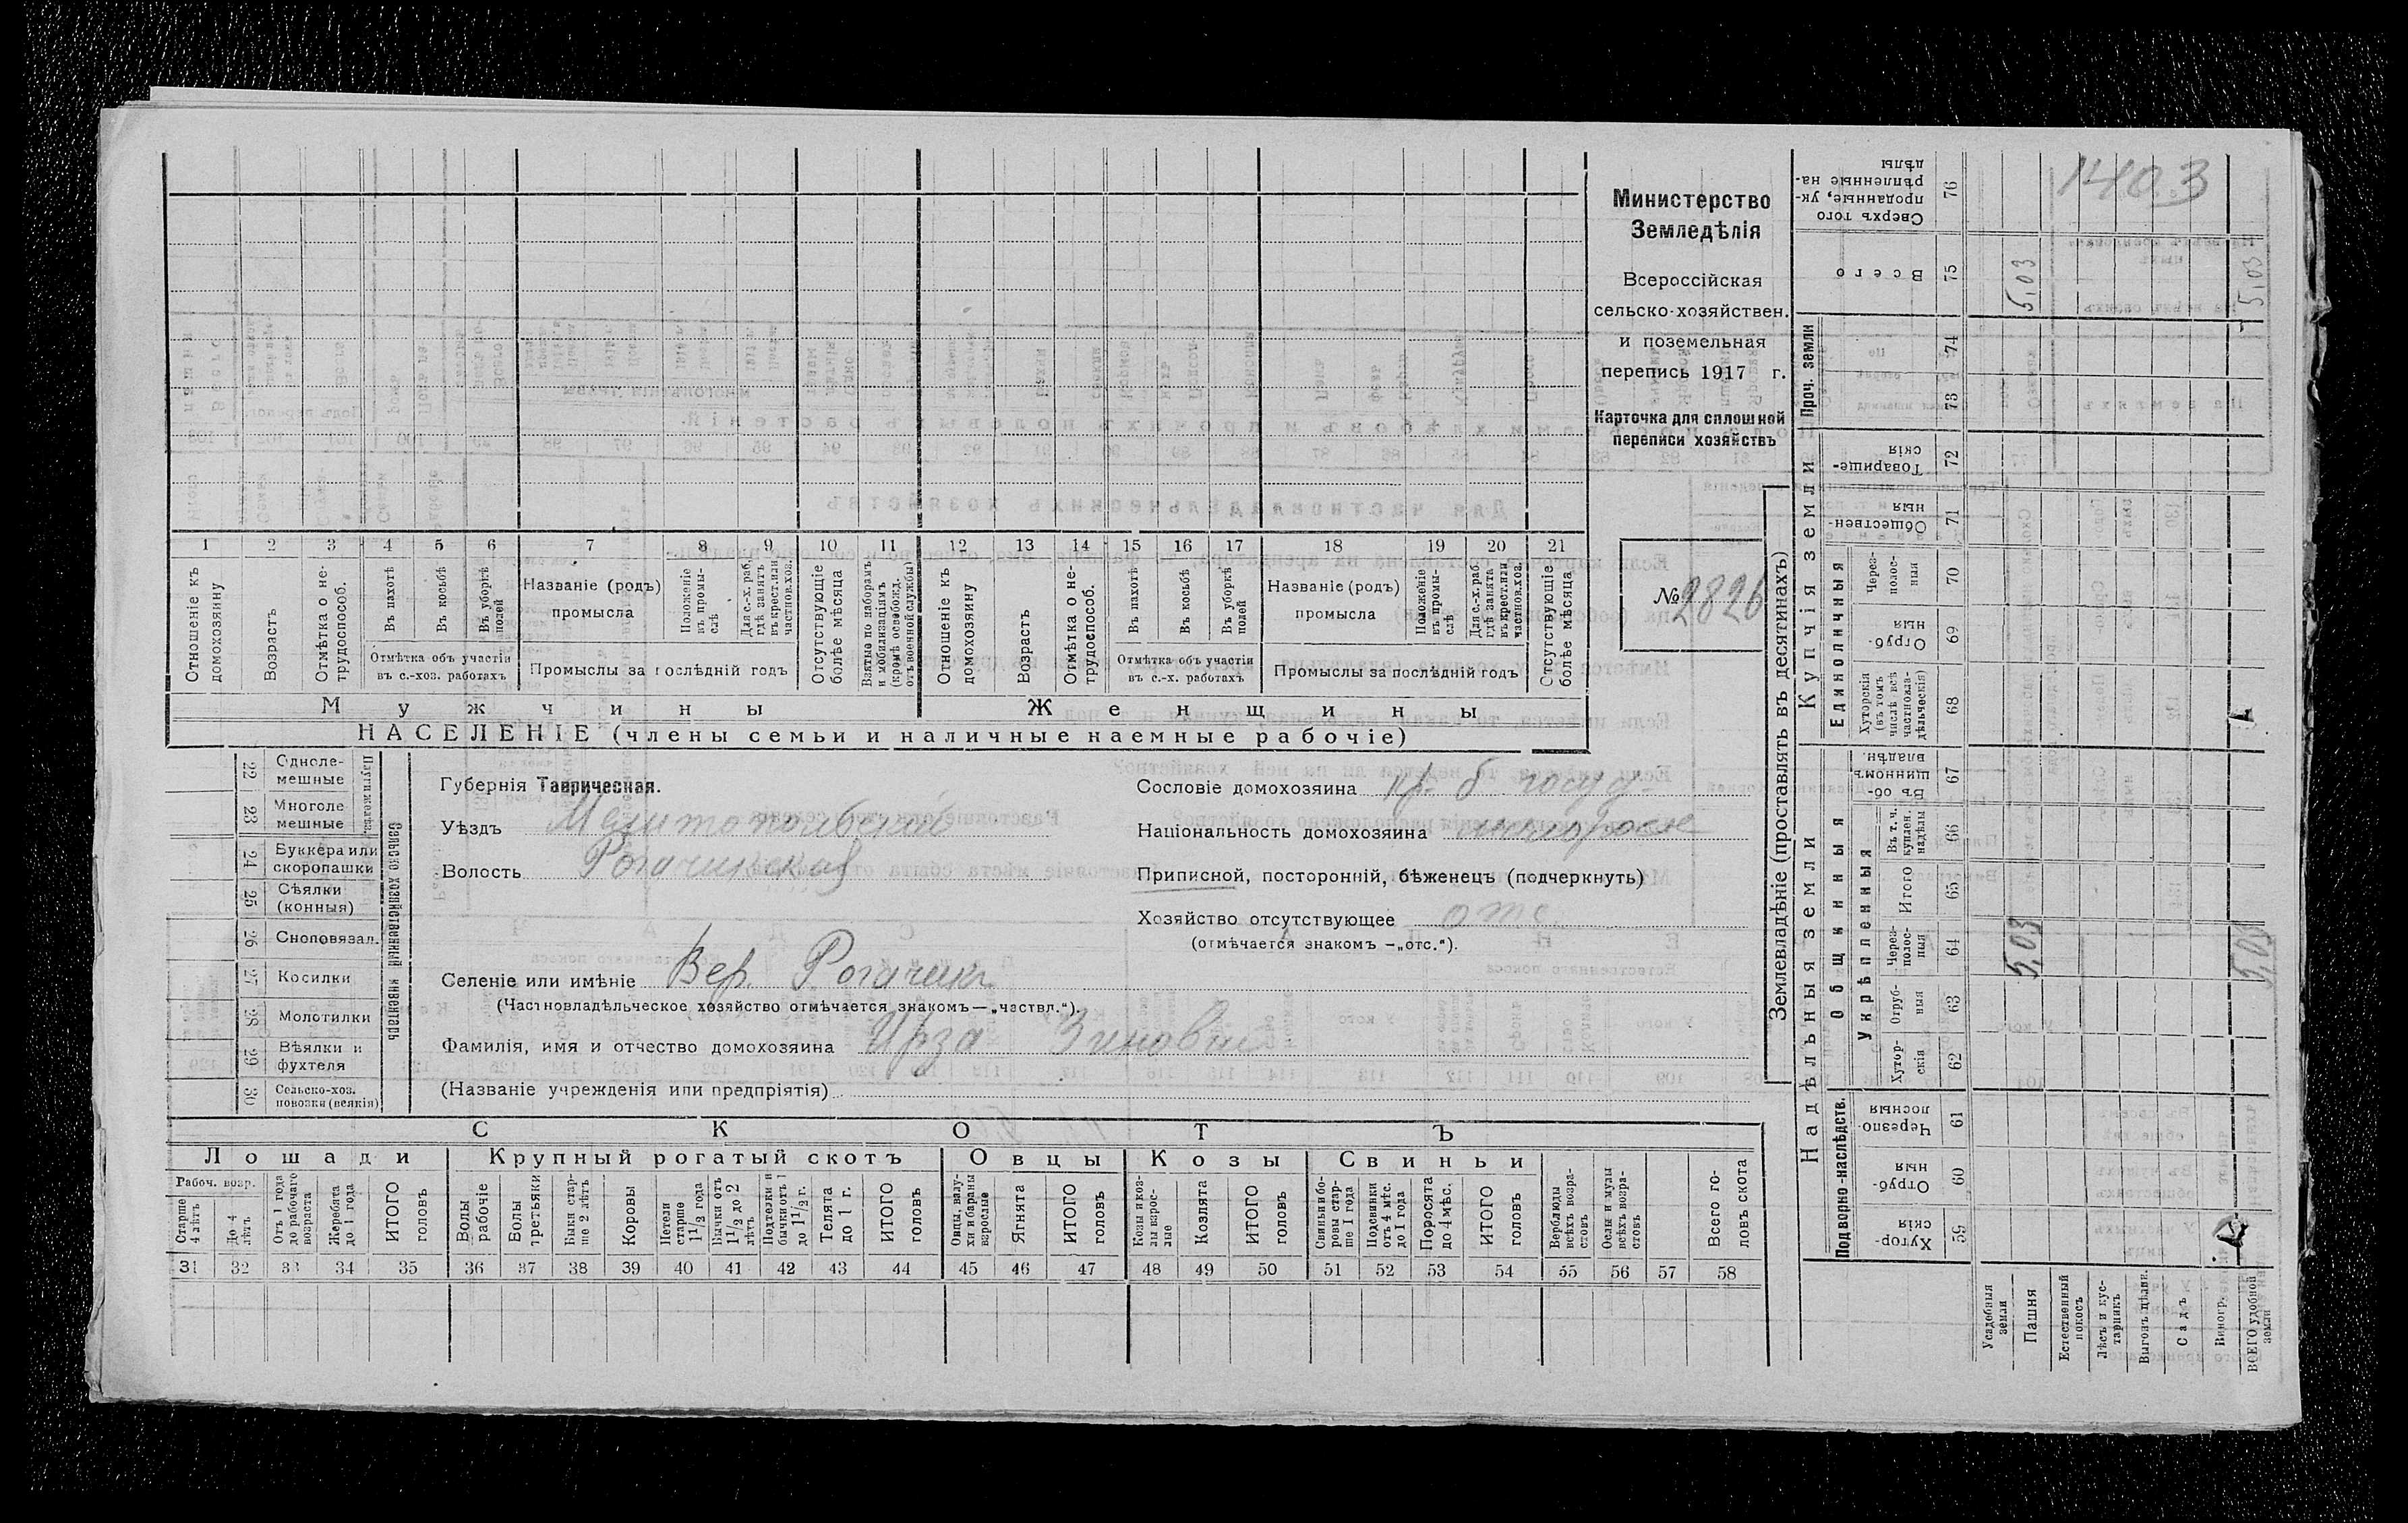 1 2 3 4 5 6 7 8 9 10 11 12 13 14 15 16 17 18 19 20 21
Отношеніе къ домохозяину
Возрастъ
Отмѣтка о не-
трудоспособ.
Въ пахотѣ
Въ косьбѣ
Въ уборкѣ
полей
Отмѣтка объ участіи
въ с.-хоз. работахъ
Названіе (родъ)
промысла
Положеніе
въ промы-
слѣ
Для с.-х. раб.
гдѣ занятъ
въ крест. или
частнов. хоз.
Промыслы за послѣдній годъ
Отсутствующіе
болѣе мѣсяца
Взятые по наборамъ
и мобилизаціямъ
(кромѣ освобожд.
отъ военной службы)
Отношеніе къ
домохозяину
Возрастъ
Отмѣтка о не-
трудоспособ.
Въ пахотѣ
Въ косьбѣ
Въ уборкѣ
полей
Отмѣтка объ участіи
въ с.-х. работахъ
Названіе (родъ)
промысла
Положеніе
въ промы-
слѣ
Для с.-х. раб.
гдѣ занятъ
въ крест. или
частнов. хоз.
Промыслы за послѣдній годъ
Отсутствующіе
болѣе мѣсяца
Мужчины
Женщины
НАСЕЛЕНІЕ (члены семьи и наличные наемные рабочіе)
Министерство
Земледѣлія
Всероссійская
сельско-хозяйствен.
и поземельная
перепись 1917 г.
Карточка для сплошной
переписи хозяйствъ
№ 2826
22 Одноле-
мешные
23 Многоле
мешные
24 Буккера или
скоропашки
25 Сѣялки
(конныя)
26 Сноповязал.
27 Косилки
28 Молотилки
29 Вѣялки и
фухтеля
30 Сельско-хоз.
повозки (всякія)
Сельско хозяйственный инвентарь
Губернія Таврическая.
Уѣздъ Мелитопольский
Волость Рогачикская
Селеніе или имѣніе Вер. Рогачикъ
(Частновладѣльческое хозяйство отмѣчается знакомъ—„частвл.“).
Фамилія, имя и отчество домохозяина Ирза Зиновий
(Названіе учрежденія или предпріятія)
Сословіе домохозяина кр. б. госуд.
Національность домохозяина
Приписной, посторонній, бѣженецъ (подчеркнуть)
Хозяйство отсутствующее отс.
(отмѣчается знакомъ —„отс.“).
СКОТЪ
Лошади
Крупный рогатый скотъ
Овцы
Козы
Свиньи
Рабоч. возр.
Старше
4 лѣтъ
До 4
лѣтъ
Отъ 1 года
до рабочаго
возраста
Жеребята
до 1 года
ИТОГО
головъ
Волы
рабочіе
Волы
третьяки
Быки стар-
ше 2 лѣтъ
Коровы
Нетели
старше
1 1/2 года
Бычки отъ
1 1/2 до 2
лѣтъ
Подтелки и
бычки отъ 1
до 1 1/2 г.
Телята
до 1 г.
ИТОГО
головъ
Овцы, валу-
хи и бараны
взрослые
Ягнята
ИТОГО
головъ
Козы и коз-
лы взрос-
лые
Козлята
ИТОГО
головъ
Свиньи и бо-
ровы стар-
ше 1 года
Подсвинки
отъ 4 мѣс.
до 1 года
Поросята
до 4 мѣс.
ИТОГО
головъ
Верблюды
всѣхъ возра-
стовъ
Ослы и мулы
всѣхъ возра-
стовъ
Всего го-
ловъ скота
31 32 33 34 35 36 37 38 39 40 41 42 43 44 45 46 47 48 49 50 51 52 53 54 55 56 57 58
Землевладѣніе (проставлять въ десятинахъ)
Надѣльныя земли
Купчія земли
Проч. земли
Подворно-наслѣдств.
Общинныя
Укрѣпленныя
Единоличныя
Хутор-
скія
59
Отруб-
ныя
60
Черезпо-
лосныя
61
Хутор-
скія
62
Отруб-
ныя
63
Через-
полос-
ныя
64
Итого
65
Въ т. ч.
куплен.
надѣлы
66
Въ об-
щинномъ
владѣн.
67
Хуторскія
(въ томъ
числѣ всѣ
частновла-
дѣльческія)
68
Отруб-
ныя
69
Через-
полос-
ныя
70
Обществен-
ныя
71
Товарище-
скія
72
73
74
Всего
75
Сверхъ того
проданные, ук-
рѣпленные на-
дѣлы
76
Усадебныя
земли
Пашня 5,03 5,03
Естественный
покосъ
Лѣсъ и кус-
тарникъ
Выгонъ цѣлин.
Садъ
Виногр.
ВСЕГО удобной
земли 5,03 5,03
1403